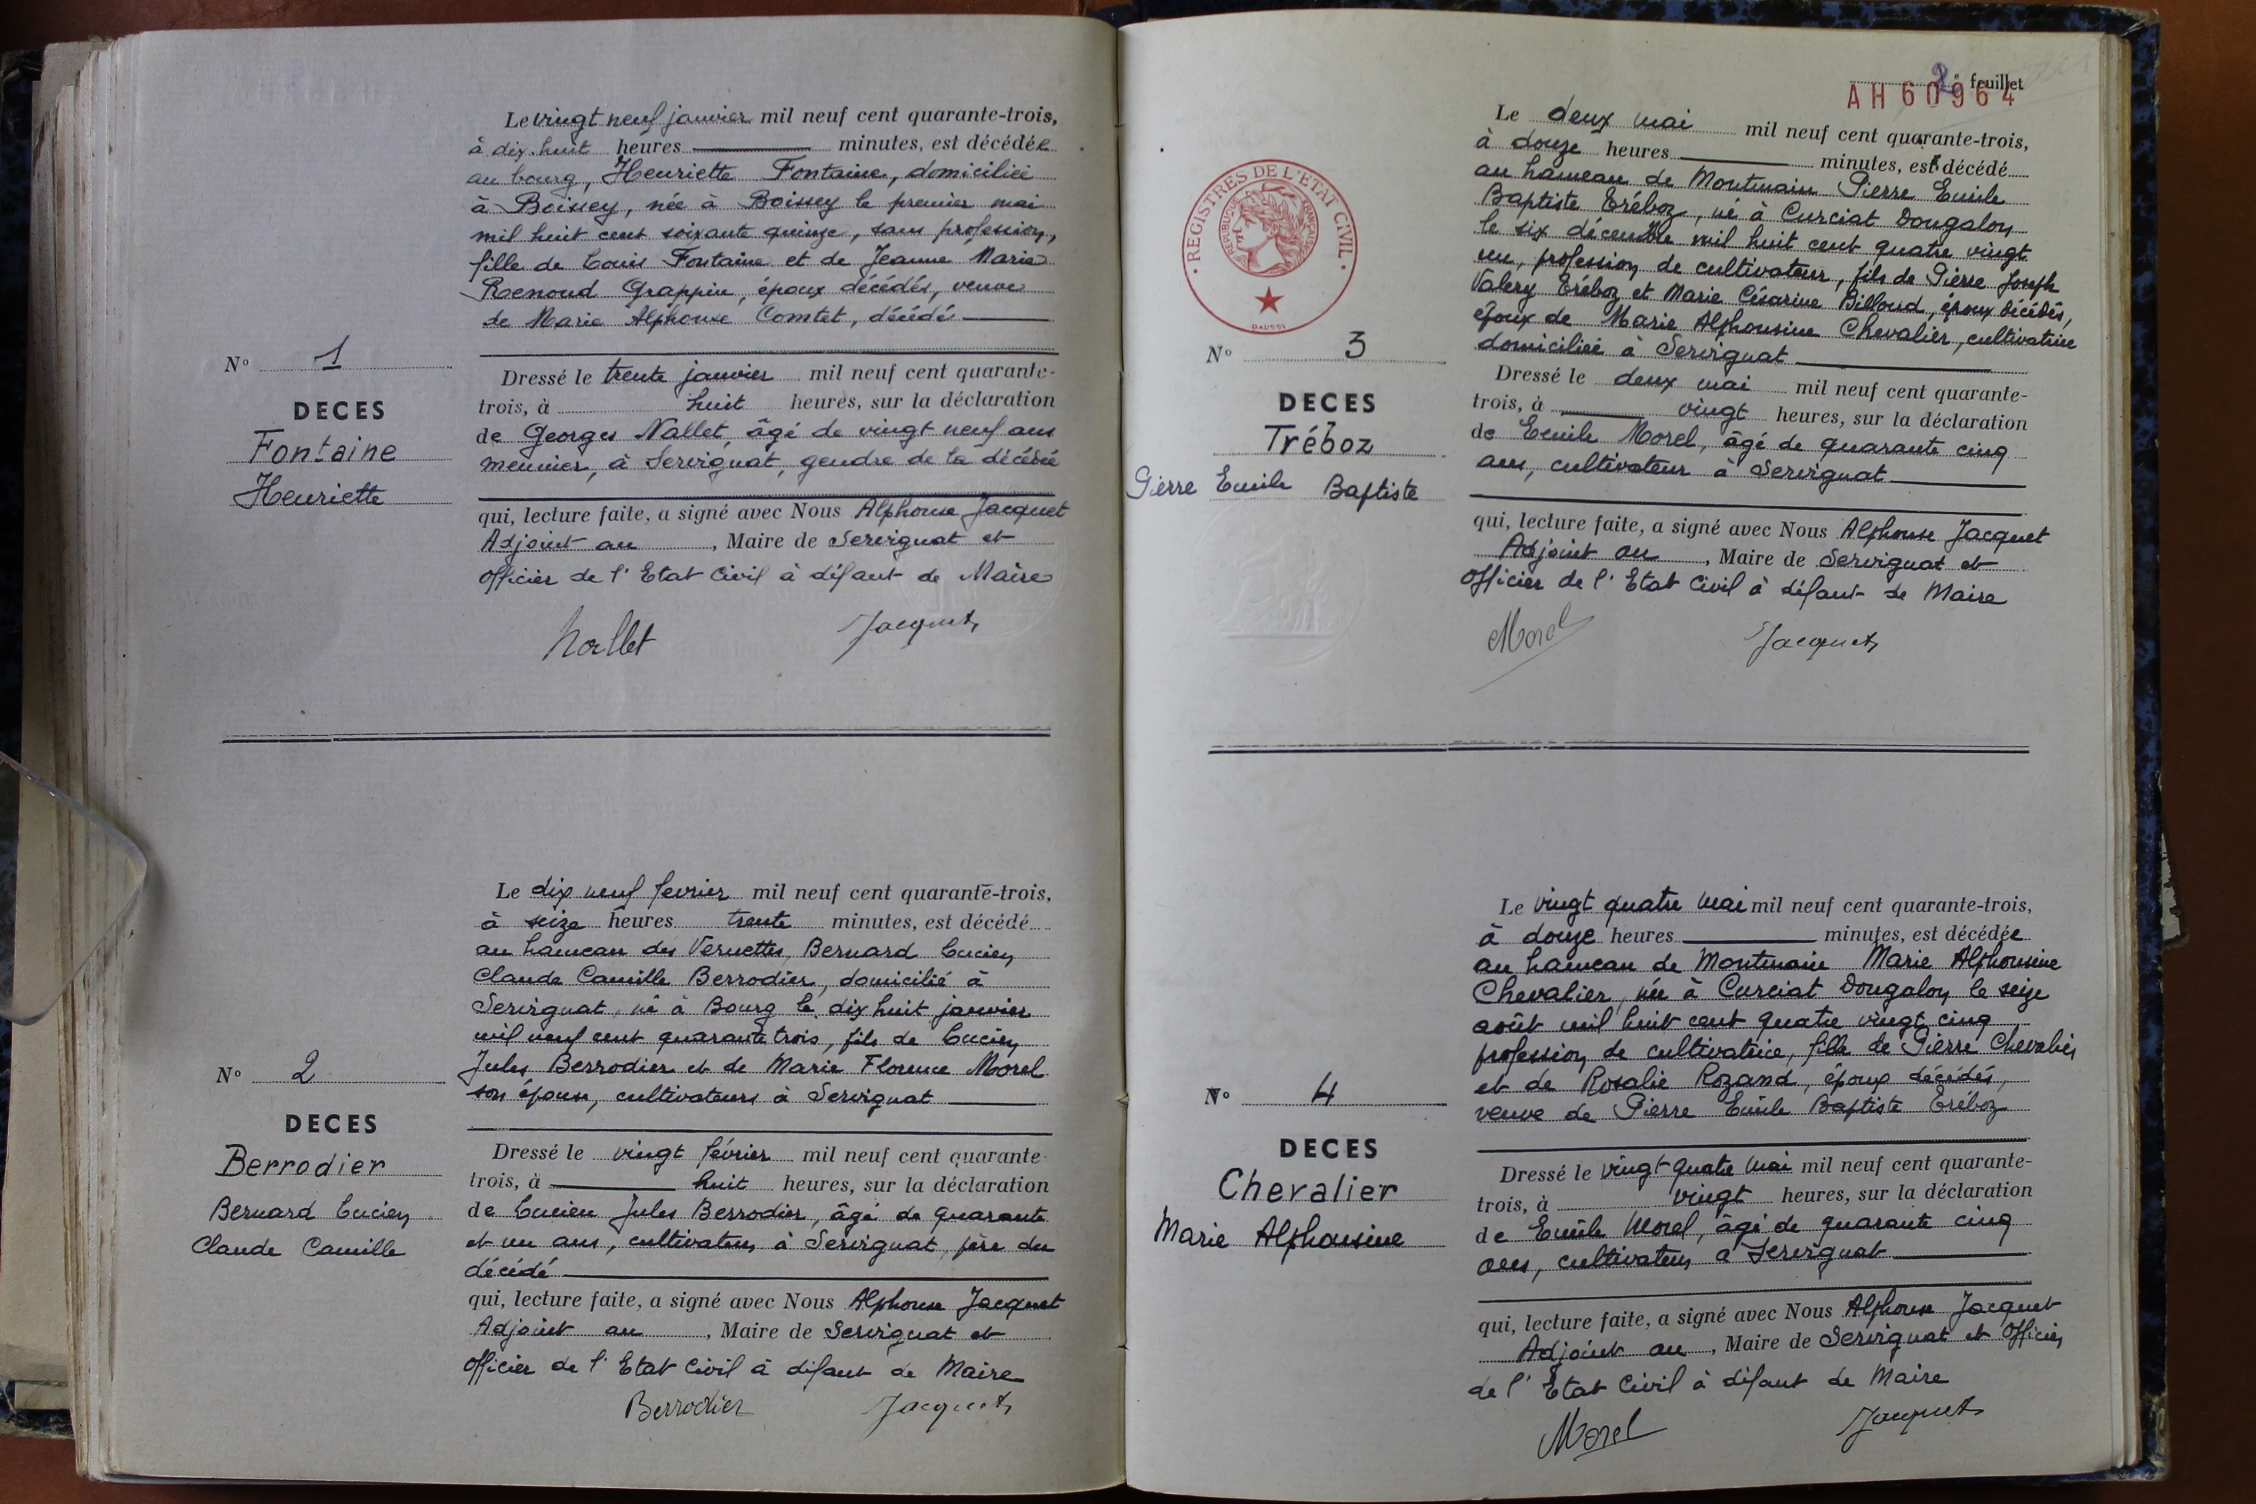 Le vingt neuf janvier mil neuf cent quarante-trois,
à dix-huit heures minutes, est décédée
au bourg, Henriette Fontaine, domiciliée
à Boissey, née à Boissey le premier mai
mil huit cent soixante quinze, sans profession,
fille de Louis Fontaine et de Jeanne Marie
Renoud Grappin, époux décédés, veuve
de Marie Alphonse Comtet, décédé
N° 1
DECES
Fontaine
Henriette
Dressé le trente janvier mil neuf cent quarante-
trois, à huit heures, sur la déclaration
de Georges Nallet, âgé de vingt neuf ans
meunier, à Servignat, gendre de la décédée
qui, lecture faite, a signé avec Nous Alphonse Jacquet
Adjoint au , Maire de Servignat et
officier de l'Etat Civil à défaut de Maire
Nallet Jacquet
Le dix neuf fevrier mil neuf cent quarante-trois,
à seize heures trente minutes, est décédé
au hameau des Vernettes, Bernard Lucien
Claude Camille Berrodier, domicilié à
Servignat, né à Bourg le dix huit janvier
mil neuf cent quarante trois, fils de Lucien
Jules Berrodier et de Marie Florence Morel
son épouse, cultivateurs à Servignat
N° 2
DECES
Berrodier
Bernard Lucien
Claude Camille
Dressé le vingt février mil neuf cent quarante-
trois, à huit heures, sur la déclaration
de Lucien Jules Berrodier, âgé de quarante
et un ans, cultivateur à Servignat, père du
décédé
qui, lecture faite, a signé avec Nous Alphonse Jacquet
Adjoint au , Maire de Servignat et
officier de l'Etat Civil à défaut de Maire
Berrodier Jacquet
2e feuillet
AH 60964
REGISTRES DE L'ETAT CIVIL
REPUBLIQUE FRANÇAISE
DAUSSY
Le deux mai mil neuf cent quarante-trois,
à douze heures minutes, est décédé
au hameau de Montmain Pierre Emile
Baptiste Tréboz, né à Curciat Dongalon
le six décembre mil huit cent quatre vingt
un, profession de cultivateur, fils de Pierre Joseph
Valery Tréboz et Marie Césarine Billoud, époux décédés,
époux de Marie Alphonsine Chevalier, cultivatrice
domiciliée à Servignat
N° 3
DECES
Tréboz
Pierre Emile Baptiste
Dressé le deux mai mil neuf cent quarante-
trois, à vingt heures, sur la déclaration
de Emile Morel, âgé de quarante cinq
ans, cultivateur à Servignat
qui, lecture faite, a signé avec Nous Alphonse Jacquet
Adjoint au , Maire de Servignat et
officier de l'Etat Civil à défaut de Maire
Morel Jacquet
Le vingt quatre mai mil neuf cent quarante-trois,
à douze heures minutes, est décédée
au hameau de Montmain Marie Alphonsine
Chevalier, née à Curciat Dongalon le seize
août mil huit cent quatre vingt cinq
profession de cultivatrice, fille de Pierre Chevalier
et de Rosalie Rozand, époux décédés,
veuve de Pierre Emile Baptiste Tréboz
N° 4
DECES
Chevalier
Marie Alphonsine
Dressé le vingt-quatre mai mil neuf cent quarante-
trois, à vingt heures, sur la déclaration
de Emile Morel, âgé de quarante cinq
ans, cultivateur à Servignat
qui, lecture faite, a signé avec Nous Alphonse Jacquet
Adjoint au , Maire de Servignat et officier
de l'Etat Civil à défaut de Maire
Morel Jacquet